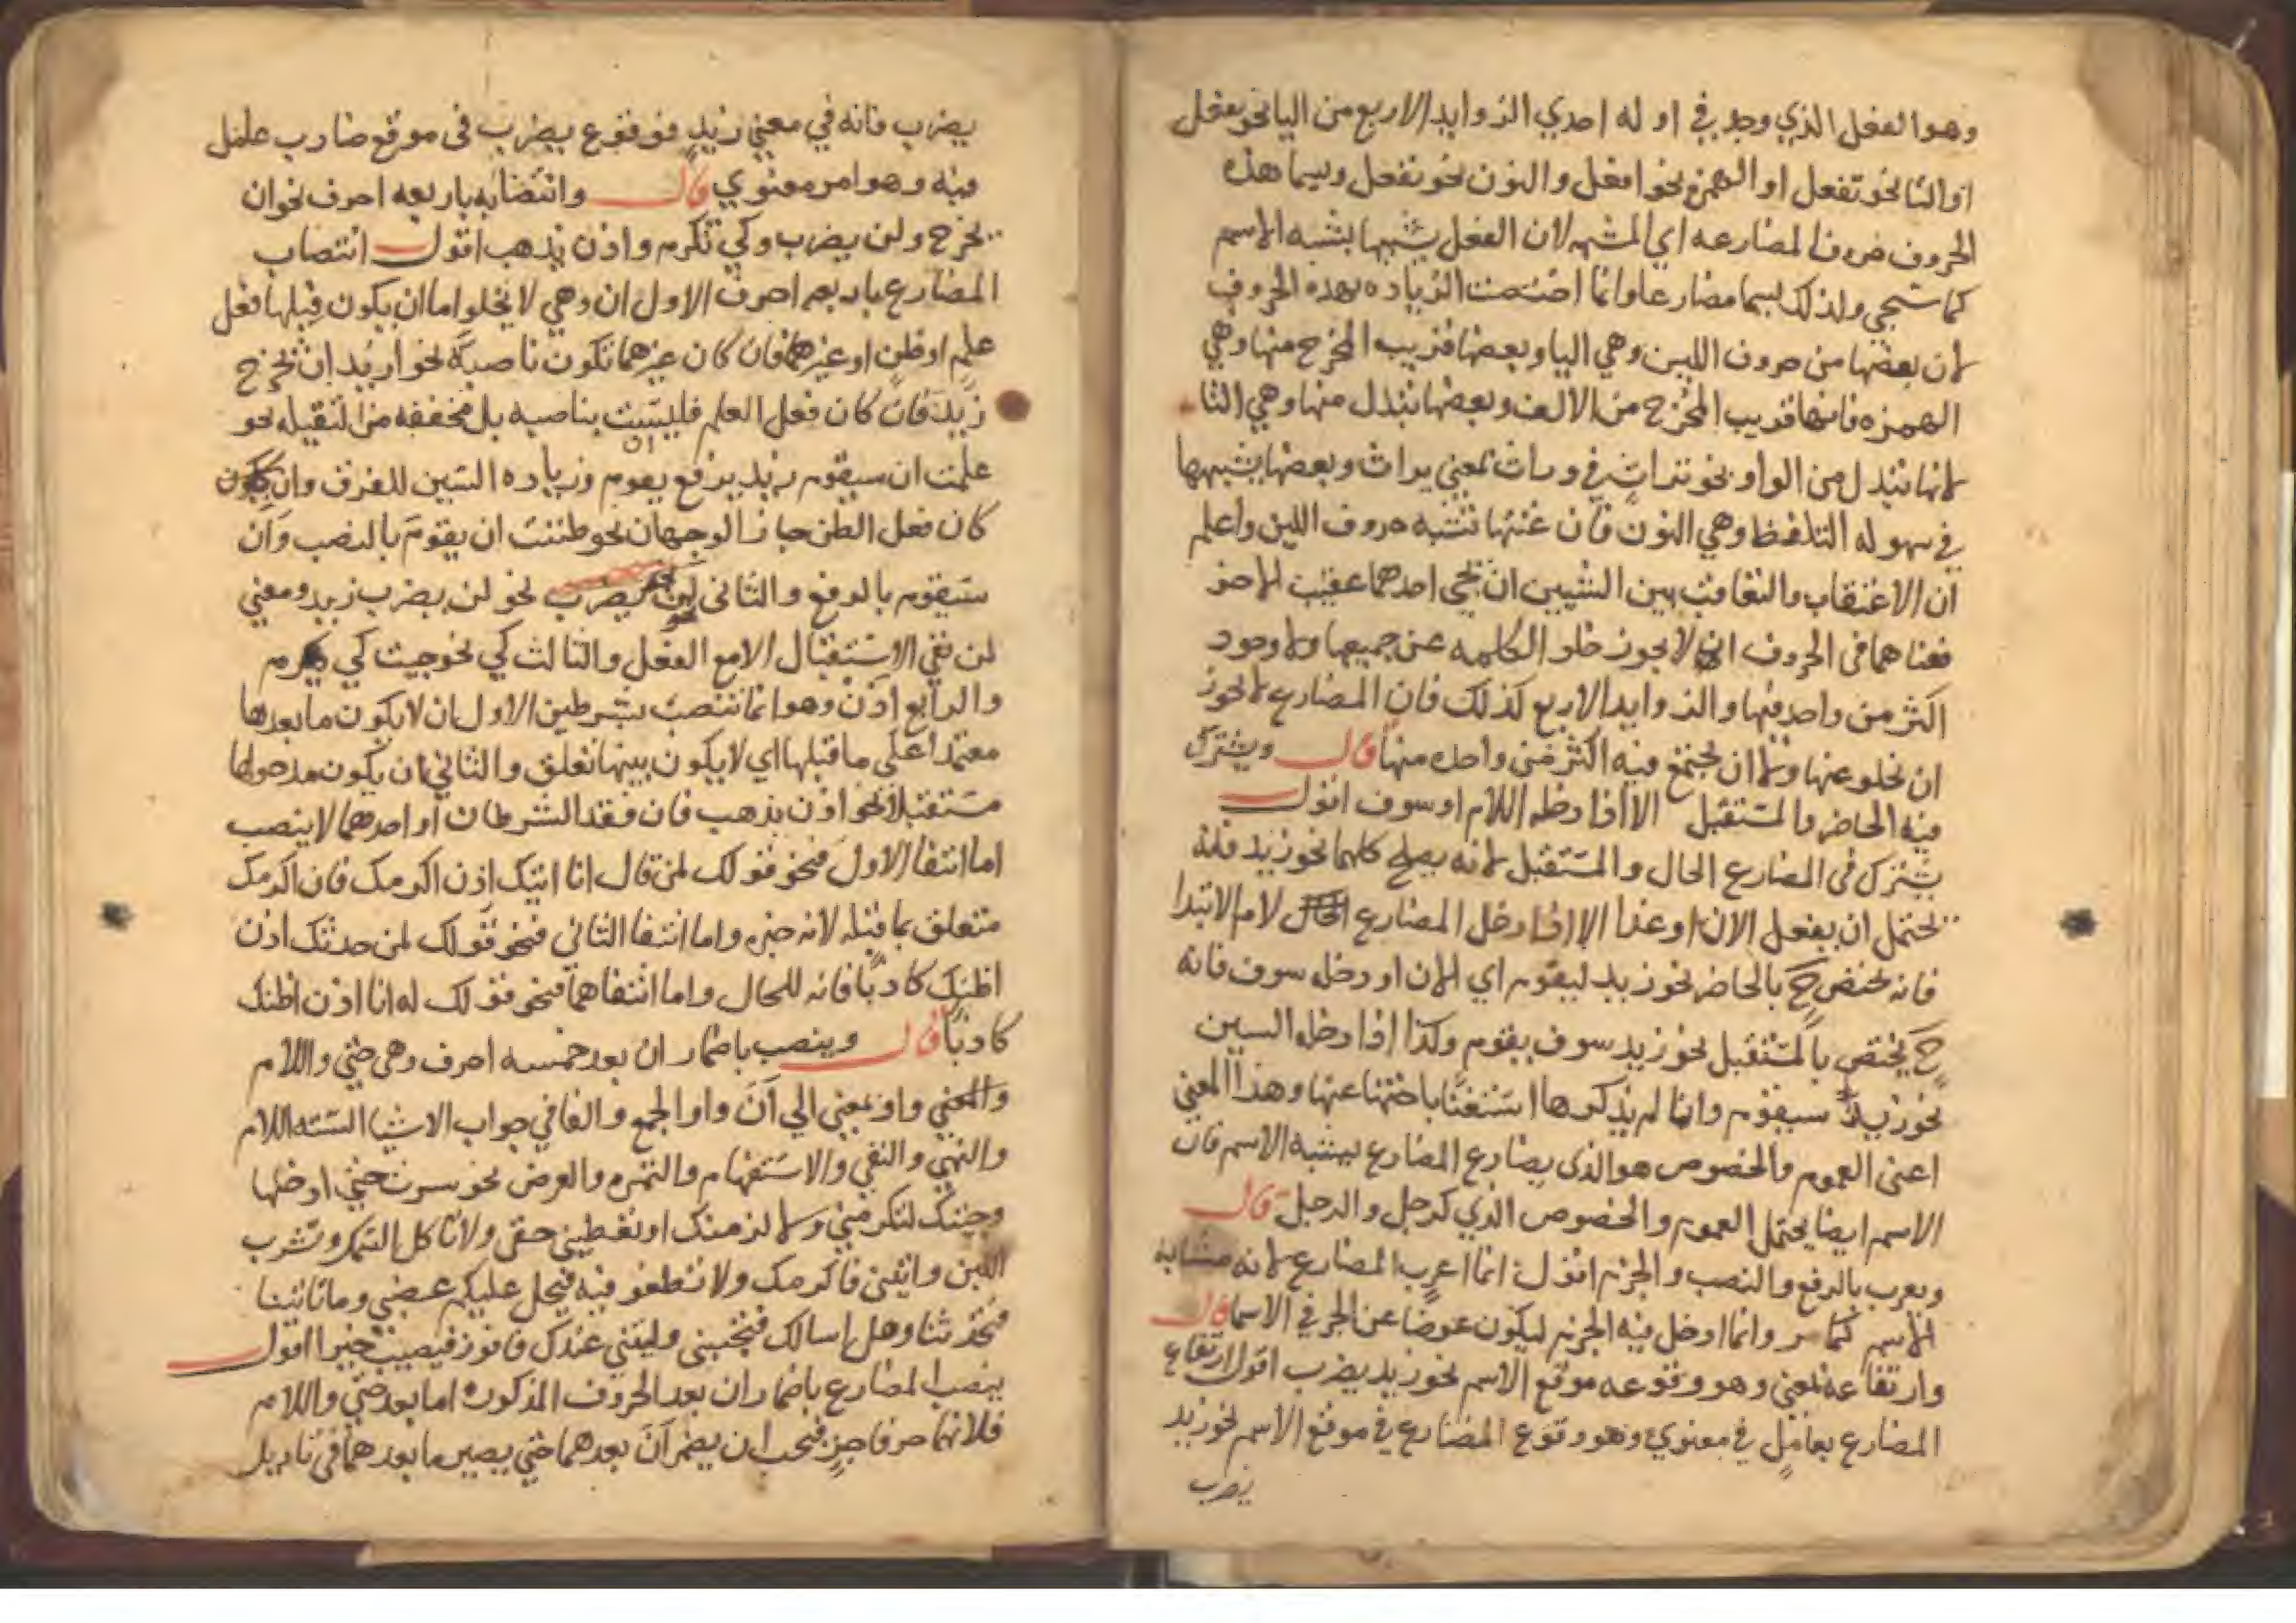 وهو الفعل الذي وجد في اوله احدي الزوايد الاربع من اليا نحو يفعل
او التا نحو تفعل او الهمزه نحو افعل والنون نحو نفعل ويسما هذه
الحروف حروف المضارعه اي المشبهه لان الفعل يشبهها بشبه الاسم
كما ستجي ولذلك يسما مضارعا وانما اختصت الزياده بهذه الحروف
لان بعضها من حروف اللين وهي اليا وبعضها قريب المخرج منها وهي
الهمزه فانها قريب المخرج من الالف وبعضها تبدل منها وهي التا
لانها تبدل من الواو نحو تراث في وراث بمعني يراث وبعضها يشبهها
في سهوله التلفظ وهي النون فان غنتها تشبه حروف اللين واعلم
ان الاعتقاب والتعاقب بين الشيين ان يجي احدهما عقيب الاخر
فمعناهما في الحروف انه لا يجوز خلو الكلمه عن جميعها ولا وجود
اكثر من واحد فيها والزوايد الاربع كذلك فان المضارع لا يجوز
ان تخلو عنها ولا ان تجتمع فيه اكثر من واحده منها قال ويشترك
فيه الحاضر والمستقبل الا اذا دخله اللام او سوف اقول
يشترك في المضارع الحال والمستقبل لانه يصلح كلهما نحو زيد فانه
يحتمل ان يفعل الان او غدا الا اذا دخل المضارع لام الابتدا
فانه يختص ح بالحاضر نحو زيد ليقوم اي الان او دخله سوف فانه
ح يختص بالمستقبل نحو زيد سوف يقوم وكذا اذا دخله السين
نحو زيد سيقوم وانما لم يذكرها استغنا باختها عنها وهذا المعني
اعني العموم والخصوص هو الذي يضارع المضارع بسببه الاسم فان
الاسم ايضا يحتمل العموم والخصوص الذي كرجل والرجل قال
ويعرب بالرفع والنصب والجزم اقول انما اعرب المضارع لانه مشابه
الاسم كما مر وانما ادخل فيه الجزم ليكون عوضا عن الجر في الاسما قال
وارتفاعه بمعني وهو وقوعه موقع الاسم نحو زيد يضرب اقول ارتفاع
المضارع بعامل في معنوي وهو وقوع المضارع في موقع الاسم نحو زيد
يضرب
يضرب فانه في معني زيد فوقوع يضرب في موقع ضارب عامل
فيه وهو امر معنوي قال وانتصابه باربعه احرف نحو ان
يخرج ولن يضرب وكي تكرم واذن يذهب اقول انتصاب
المضارع باربعه احرف الاول ان وهي لا يخلو اما ان يكون قبلها فعل
علم او ظن او غيرهما فان كان غيرهما تكون ناصبة نحو اريد ان يخرج
زيد فان كان فعل العلم فليست بناصبه بل مخففه من الثقيله نحو
علمت ان سيقوم زيد برفع يقوم وزياده السين للفرق وان
كان فعل الظن جاز الوجهان نحو ظننت ان يقوم بالنصب وان
سيقوم بالرفع والثاني لن نحو لن يضرب زيد ومعني
لن نفي الاستقبال الا مع الفعل والثالث كي نحو جيت كي تكرم
والرابع اذن وهو انما تنصب بشرطين الاول ان لا يكون ما بعدها
معتمدا علي ما قبلها اي لا يكون بينها تعلق والثاني ان يكون مدخولها
مستقبلا نحو اذن يذهب فان فقد الشرطان او احدهما لا ينصب
اما انتفا الاول فنحو قولك لمن قال انا اتيك اذن اكرمك فان اكرمك
متعلق بما قبله لانه خبره واما انتفا الثاني فنحو قولك لمن حدثك اذن
اظنك كاذبا فانه للحال واما انتفاهما فنحو قولك له انا اذن اظنك
كاذبا قال وينصب باضمار ان بعد خمسه احرف وهي حتي واللام
واو بمعني الي ان واو الجمع والفا في جواب الاشيا السته اللام
والنهي والنفي والاستفهام والتمني والعرض نحو سرت حتي ادخلها
وجيتك لتكرمني ولا لزمنك او تعطيني حقي ولا تاكل السمك وتشرب
اللبن واتيني فاكرمك ولا تطغوا فيه فيحل عليكم غضبي وما تاتينا
فتحدثنا وهل اسالك فتجيبني وليتني عندك فافوز فتصيب خيرا اقول
ينصب المضارع باضمار ان بعد الحروف المذكوره اما بعد حتي واللام
فلانهما حرفا جر فيجب ان يضمر ان بعدهما حتي يصير ما بعدهما في تاويل